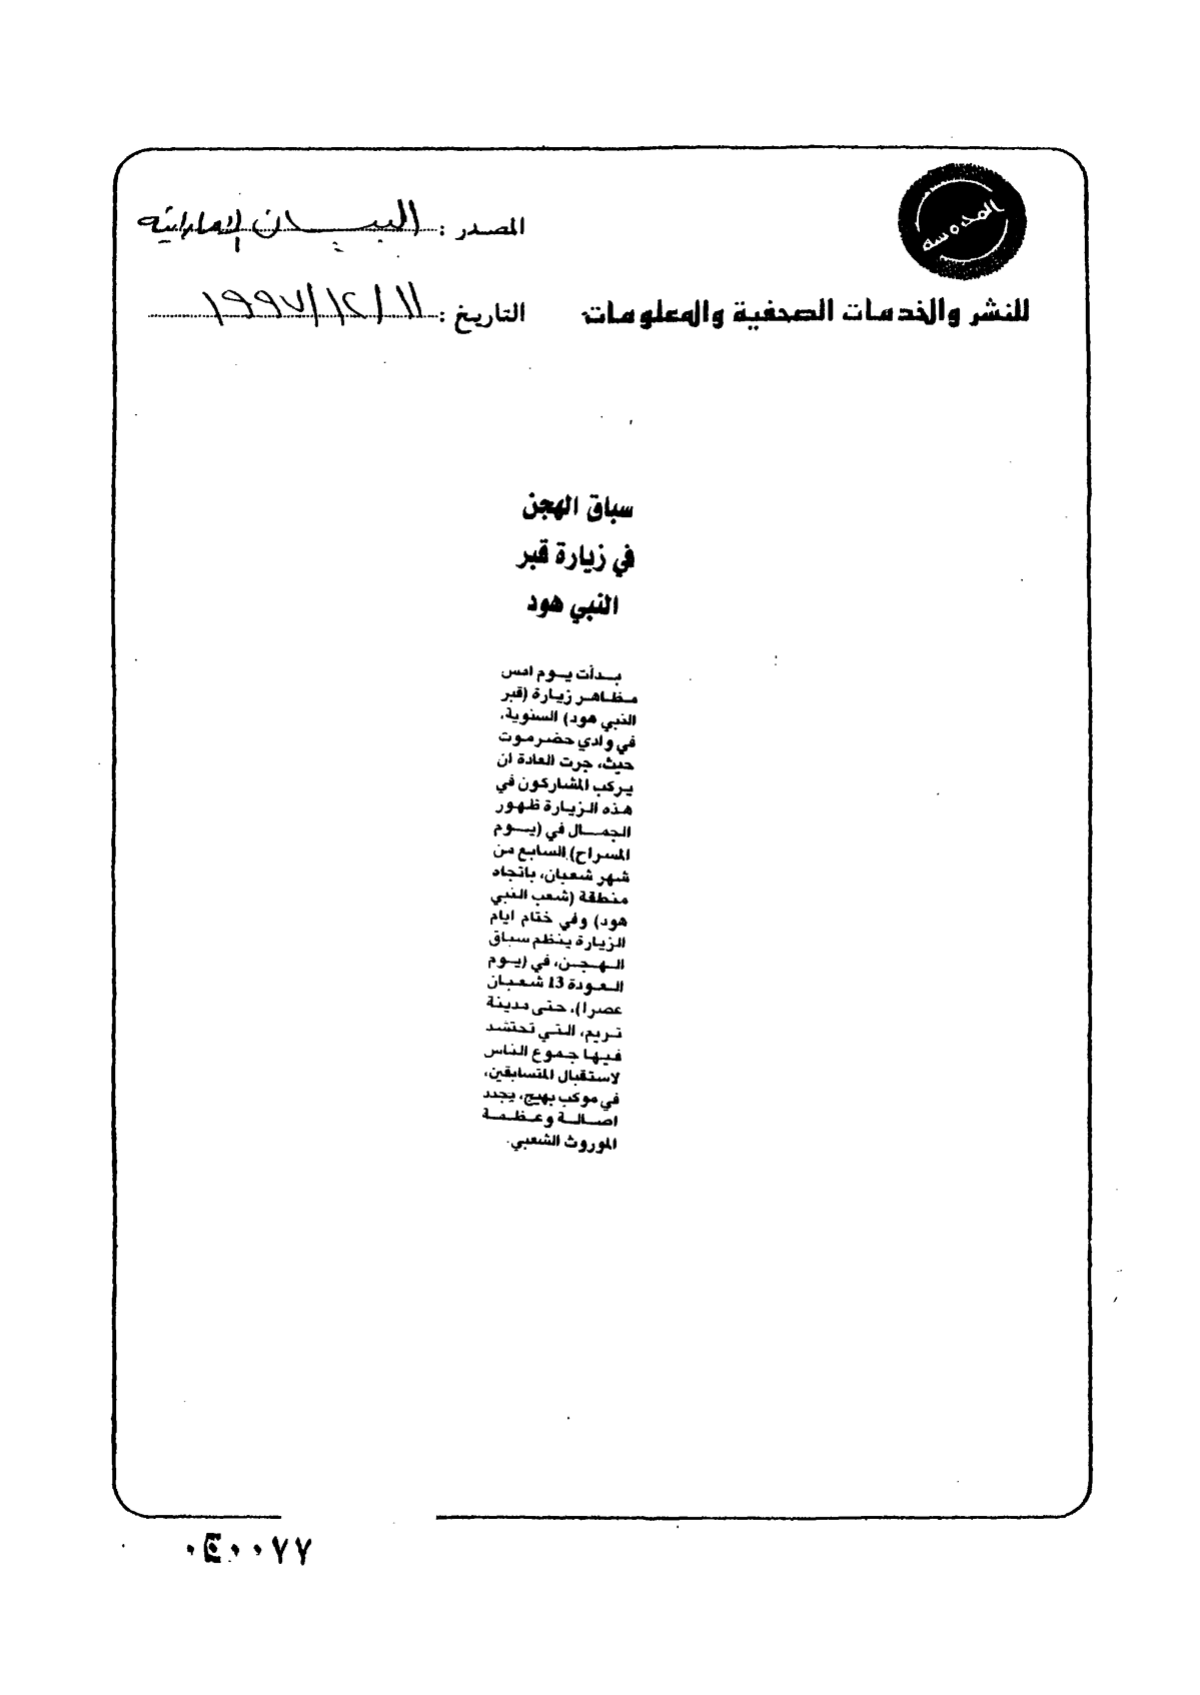 المحروسة
المصدر : البيان الإماراتية
للنشر والخدمات الصحفية والمعلومات
التاريخ : ١١/١٢/١٩٩٧
سباق الهجن
في زيارة قبر
النبي هود
بدأت يوم امس
مظاهر زيارة (قبر
النبي هود) السنوية،
في وادي حضرموت
حيث، جرت العادة ان
يركب المشاركون في
هذه الزيارة ظهور
الجمال في (يوم
المسراح) السابع من
شهر شعبان، باتجاه
منطقة (شعب النبي
هود) وفي ختام ايام
الزيارة ينظم سباق
الهجن، في (يوم
العودة 13 شعبان
عصرا)، حتى مدينة
تريم، التي تحتشد
فيها جموع الناس
لاستقبال المتسابقين،
في موكب بهيج، يجدد
اصالة وعظمة
الموروث الشعبي.